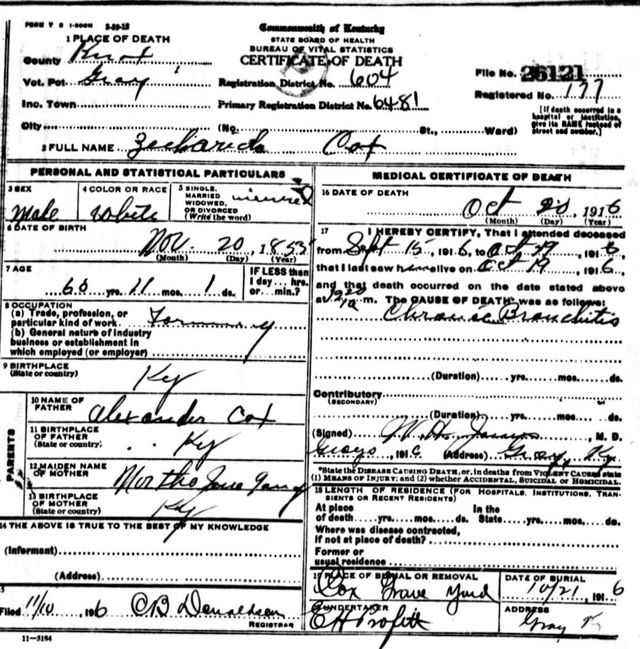 FORM V S 1-500M 3-29-12
Commonwealth of Kentucky
STATE BOARD OF HEALTH
BUREAU OF VITAL STATISTICS
CERTIFICATE OF DEATH
1 PLACE OF DEATH
County Knox
Vot. Pct. Gray
Inc. Town
City
Registration District No. 604
Primary Registration District No. 6481
File No. 26121
Registered No. 177
(No. St., Ward)
[If death occurred in a hospital or institution, give its NAME instead of street and number.]
2 FULL NAME Zechariah Cox
PERSONAL AND STATISTICAL PARTICULARS
3 SEX Male
4 COLOR OR RACE White
5 SINGLE, MARRIED, WIDOWED, OR DIVORCED (Write the word)
6 DATE OF BIRTH
Nov. 20, 1855
(Month) (Day) (Year)
7 AGE
60 yrs. 11 mos. 1 ds.
IF LESS than 1 day... hrs. or... min.?
8 OCCUPATION
(a) Trade, profession, or particular kind of work
(b) General nature of industry business or establishment in which employed (or employer)
9 BIRTHPLACE (State or country) Ky
PARENTS
10 NAME OF FATHER Alexander Cox
11 BIRTHPLACE OF FATHER (State or country) Ky
12 MAIDEN NAME OF MOTHER Martha Jane
13 BIRTHPLACE OF MOTHER (State or country) Ky
14 THE ABOVE IS TRUE TO THE BEST OF MY KNOWLEDGE
(Informant)
(Address)
Filed 11/10, 1916 CB Donaldson
REGISTRAR
11-3184
MEDICAL CERTIFICATE OF DEATH
16 DATE OF DEATH
Oct 20, 1916
(Month) (Day) (Year)
17 I HEREBY CERTIFY, That I attended deceased
from Sept 15, 1916, to Oct 19, 1916,
that I last saw him alive on Oct 19, 1916,
and that death occurred on the date stated above
at m. The CAUSE OF DEATH was as follows:
Chronic Bronchitis
(Duration) yrs. mos. ds.
Contributory (SECONDARY)
(Duration) yrs. mos. ds.
(Signed) W. H. M. D.
191 (Address) Gray, Ky.
*State the DISEASE CAUSING DEATH, or, in deaths from VIOLENT CAUSES state (1) MEANS OF INJURY; and (2) whether ACCIDENTAL, SUICIDAL or HOMICIDAL.
18 LENGTH OF RESIDENCE (FOR HOSPITALS, INSTITUTIONS, TRANSIENTS OR RECENT RESIDENTS)
At place of death yrs. mos. ds. In the State yrs. mos. ds.
Where was disease contracted, if not at place of death?
Former or usual residence
19 PLACE OF BURIAL OR REMOVAL
Cox Grave Yard
DATE OF BURIAL
10/21, 1916
UNDERTAKER
E H Profitt
ADDRESS
Gray K